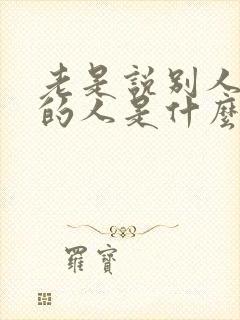 老是說別人
的人是什麼
羅寶